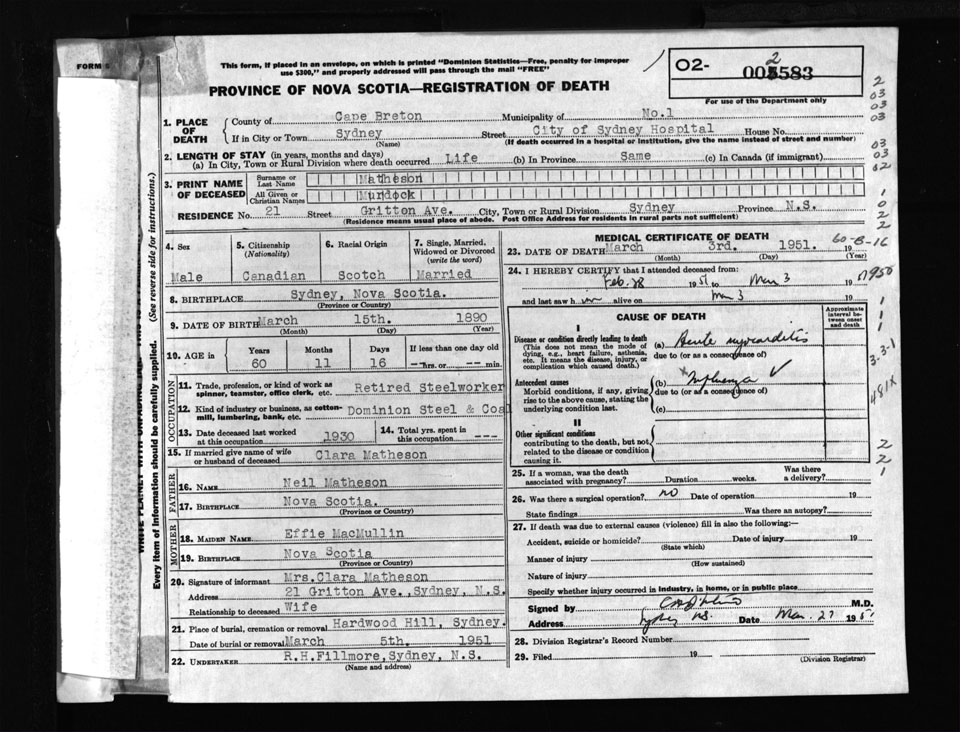 FORM
This form, if placed in an envelope, on which is printed "Dominion Statistics—Free, penalty for improper
use $300," and properly addressed will pass through the mail "FREE"
PROVINCE OF NOVA SCOTIA—REGISTRATION OF DEATH
O2- 2 005583
For use of the Department only
1. PLACE OF DEATH
County of Cape Breton Municipality of No.1
If in City or Town Sydney Street City of Sydney Hospital House No.
(Name) (If death occurred in a hospital or institution, give the name instead of street and number)
2. LENGTH OF STAY (in years, months and days)
(a) In City, Town or Rural Division where death occurred Life (b) In Province Same (c) In Canada (if immigrant)
3. PRINT NAME OF DECEASED
Surname or Last Name Matheson
All Given or Christian Names Murdock
RESIDENCE No. 21 Street Gritton Ave. City, Town or Rural Division Sydney Province N.S.
(Residence means usual place of abode. Post Office Address for residents in rural parts not sufficient)
4. Sex 5. Citizenship (Nationality) 6. Racial Origin 7. Single, Married, Widowed or Divorced (write the word)
Male Canadian Scotch Married
8. BIRTHPLACE Sydney, Nova Scotia.
(Province or Country)
9. DATE OF BIRTH March 15th. 1890
(Month) (Day) (Year)
10. AGE in Years Months Days If less than one day old
60 11 16 --hrs. or -- min.
OCCUPATION
11. Trade, profession, or kind of work as spinner, teamster, office clerk, etc. Retired Steelworker
12. Kind of industry or business, as cotton-mill, lumbering, bank, etc. Dominion Steel & Coal
13. Date deceased last worked at this occupation 1930 14. Total yrs. spent in this occupation ---
15. If married give name of wife or husband of deceased Clara Matheson
FATHER
16. NAME Neil Matheson
17. BIRTHPLACE Nova Scotia.
(Province or Country)
MOTHER
18. MAIDEN NAME Effie MacMullin
19. BIRTHPLACE Nova Scotia
(Province or Country)
20. Signature of informant Mrs.Clara Matheson
Address 21 Gritton Ave.,Sydney, N.S.
Relationship to deceased Wife
21. Place of burial, cremation or removal Hardwood Hill, Sydney.
Date of burial or removal March 5th. 1951
22. UNDERTAKER R.H.Fillmore,Sydney, N.S.
(Name and address)
MEDICAL CERTIFICATE OF DEATH
23. DATE OF DEATH March 3rd. 1951. 19
(Month) (Day) (Year)
60-8-16
24. I HEREBY CERTIFY that I attended deceased from:
Feb. 28 1951 to Mar 3 19
and last saw h im alive on Mar 3 19
CAUSE OF DEATH
Approximate interval between onset and death
I
Disease or condition directly leading to death (a) Acute myocarditis
(This does not mean the mode of dying, e.g., heart failure, asthenia, etc. It means the disease, injury, or complication which caused death.) due to (or as a consequence of)
Antecedent causes (b) Influenza
Morbid conditions, if any, giving rise to the above cause, stating the underlying condition last. due to (or as a consequence of)
(c)
II
Other significant conditions
contributing to the death, but not related to the disease or condition causing it.
25. If a woman, was the death associated with pregnancy? Duration weeks. Was there a delivery?
26. Was there a surgical operation? no Date of operation 19
State findings Was there an autopsy?
27. If death was due to external causes (violence) fill in also the following:—
Accident, suicide or homicide? Date of injury 19
(State which)
Manner of injury
(How sustained)
Nature of injury
Specify whether injury occurred in industry, in home, or in public place
Signed by M.D.
Address Sydney N.S. Date Mar. 27 195
28. Division Registrar's Record Number
29. Filed 19
(Division Registrar)
Every item of information should be carefully supplied. (See reverse side for instructions.)
2
03
03
03
03
03
02
1
0
2
2
1
1
1
3-3-1
481X
2
2
1